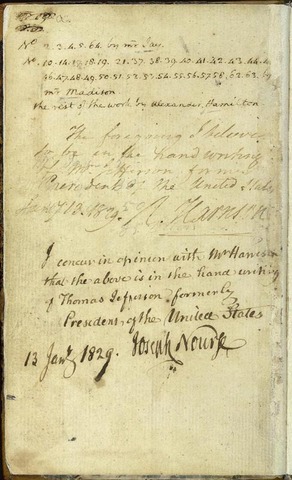 No 2. 3. 4. 5. 64. by mr Jay.
No. 10. 14. 17. 18. 19. 21. 37. 38. 39. 40. 41. 42. 43. 44. 45.
46. 47. 48. 49. 50. 51. 52. 53. 54. 55. 56. 57. 58. 62. 63. by
mr Madison
the rest of the work by Alexander Hamilton
The foregoing I believe
to be in the hand writing
of Mr. Jefferson former
President of The United States
Jany 13. 1829. R. Harrison
I concur in opinion with Mr Harrison
that the above is in the hand writing
of Thomas Jefferson, formerly
President of the United States
13 Jany 1829. Joseph Nourse